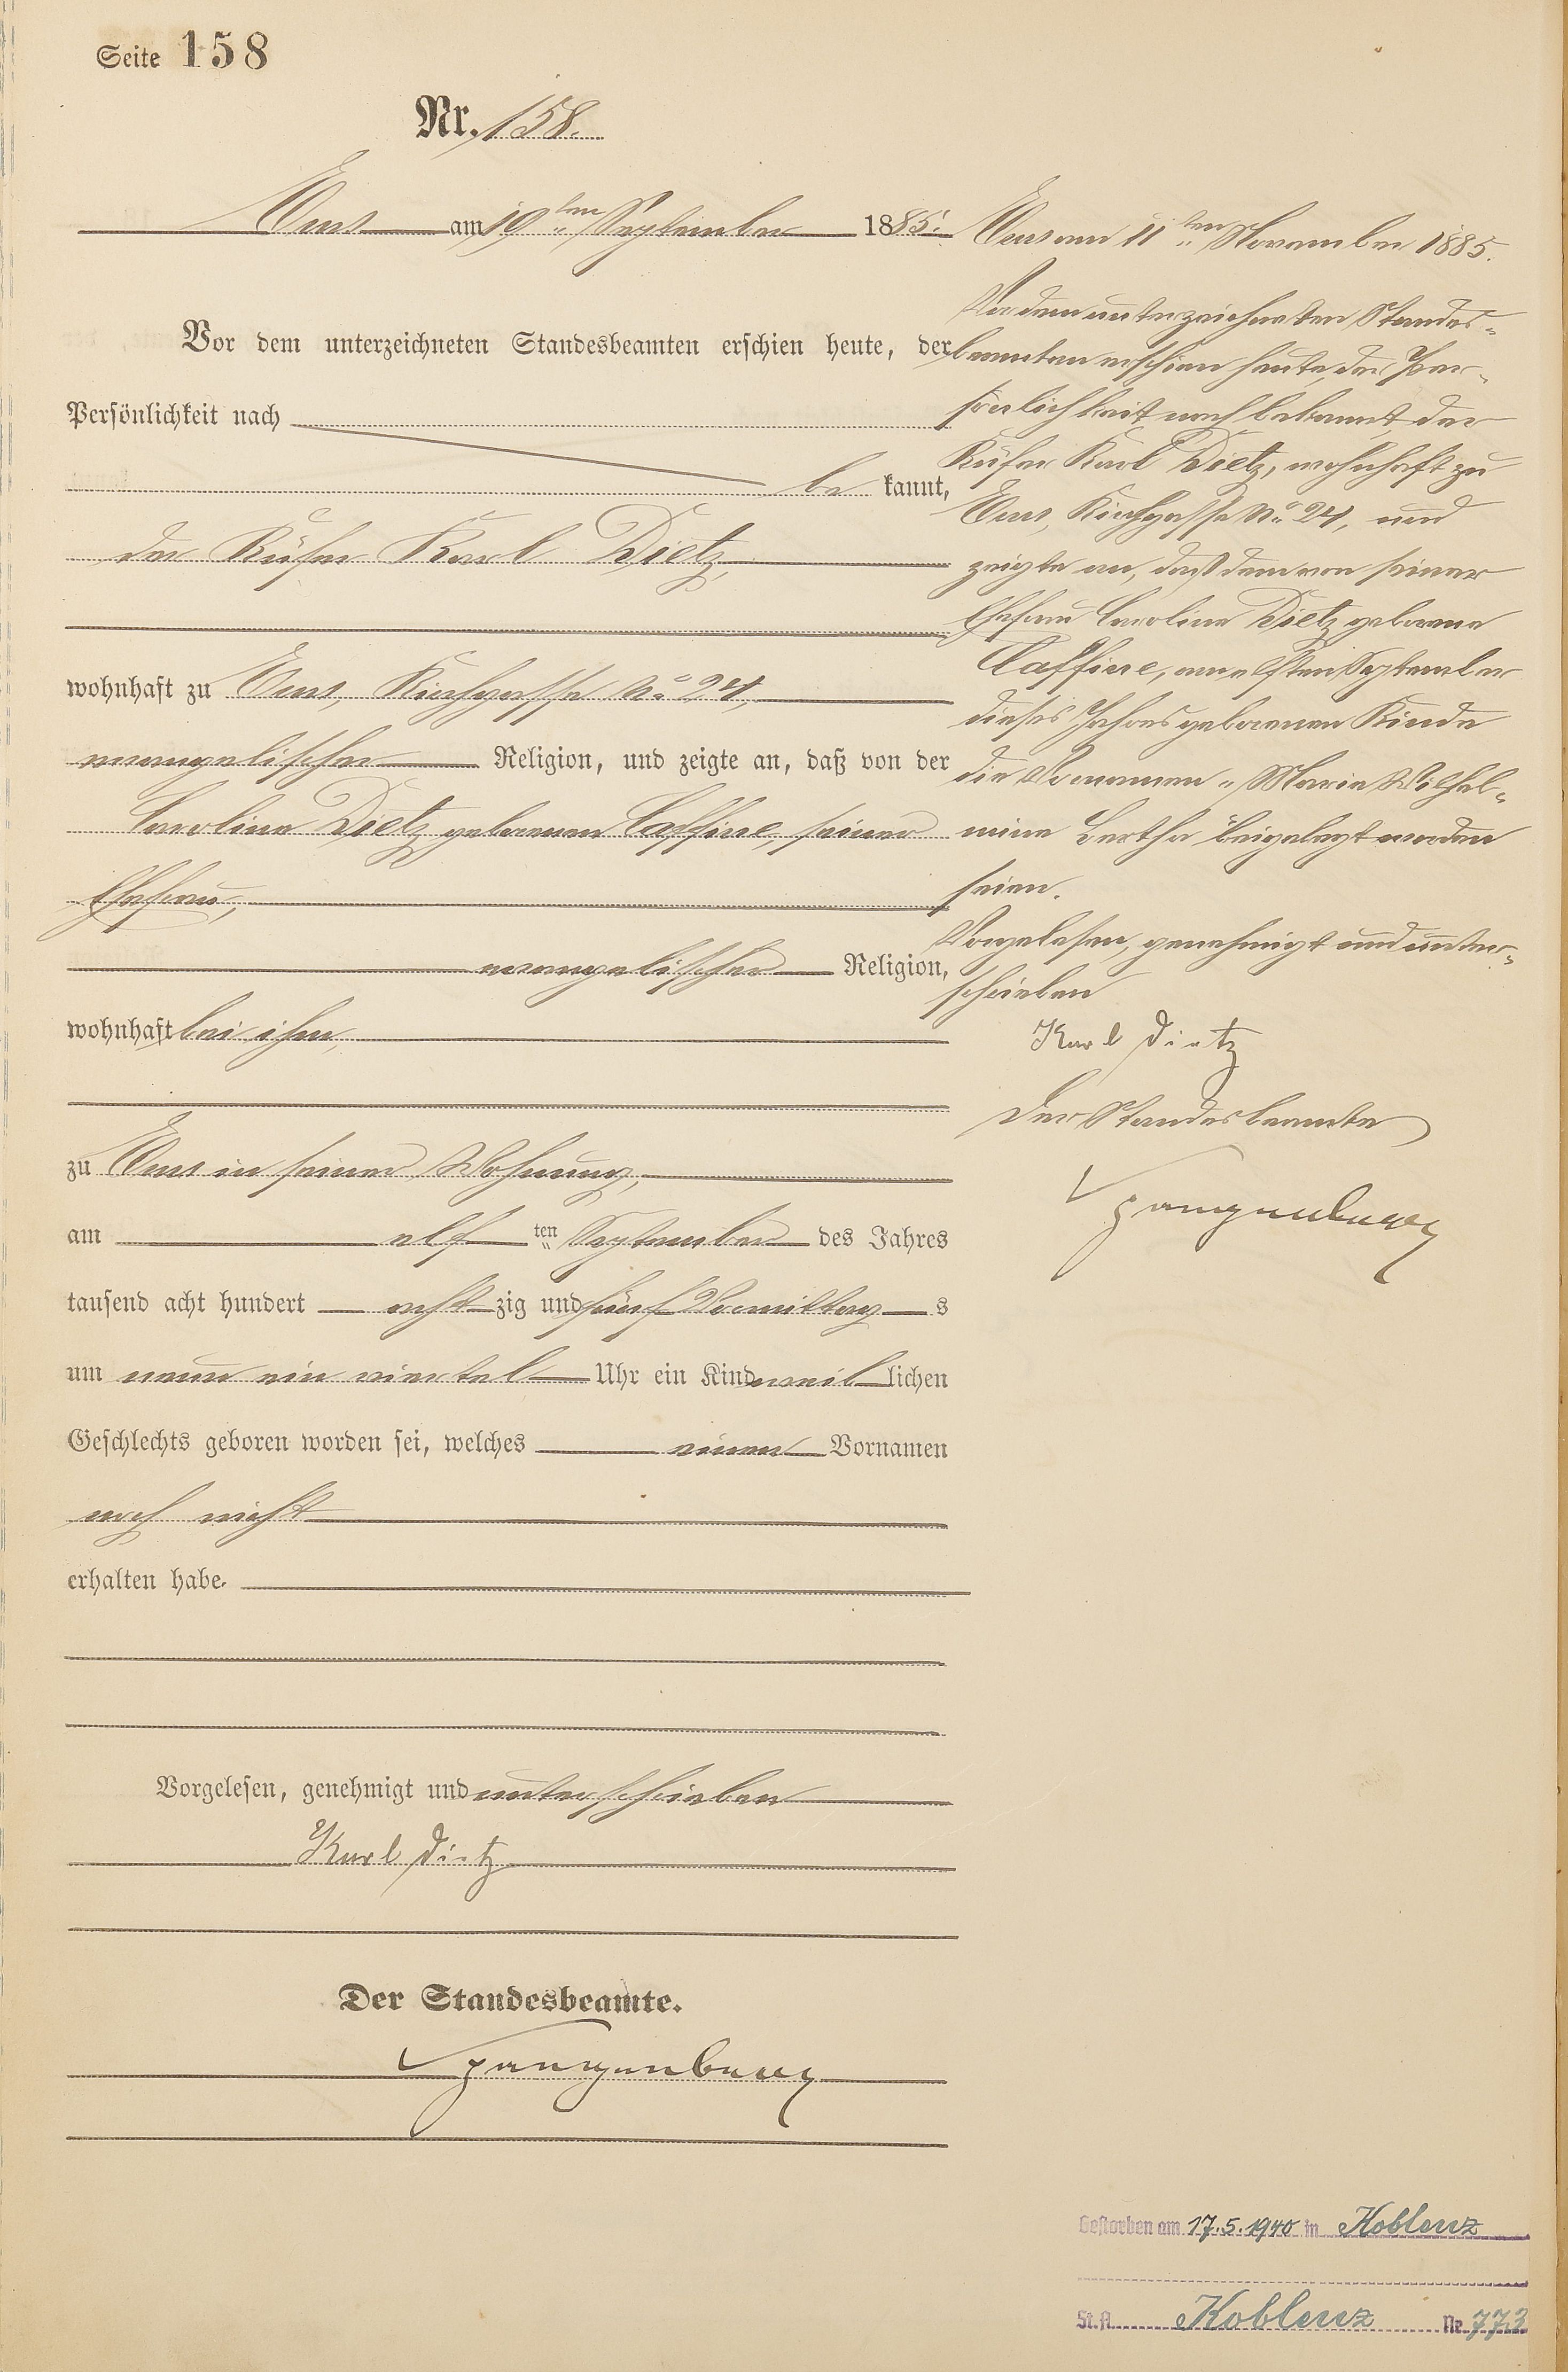 Seite 158
Nr. 158.
Ems am 19ten September 1885.
Vor dem unterzeichneten Standesbeamten erschien heute, der
Persönlichkeit nach
be kannt,
der Küfer Karl Dietz,
wohnhaft zu Ems, Kirchgasse No 24,
evangelischer Religion, und zeigte an, daß von der
Caroline Dietz geborenen Caffine, seiner
Ehefrau,
evangelischer Religion,
wohnhaft bei ihm,
zu Ems in seiner Wohnung,
am elf ten September des Jahres
tausend acht hundert acht zig und fünf Vormittag s
um neun ein viertel Uhr ein Kind weib lichen
Geschlechts geboren worden sei, welches einen Vornamen
noch nicht
erhalten habe.
Vorgelesen, genehmigt und unterschrieben
Karl Dietz
Der Standesbeamte.
Spangenberg
Ems am 11ten November 1885.
Vor dem unterzeichneten Standes-
beamten erschien heute, der Per-
sönlichkeit nach bekannt, der
Küfer Karl Dietz, wohnhaft zu
Ems, Kirchgasse No 24, und
zeigte an, daß dem von seiner
Ehefrau Caroline Dietz geborene
Caffine, am elften September
dieses Jahres geborenen Kinde
die Vornamen „Marie Wilhel-
mine Bertha" beigelegt worden
seien.
Vorgelesen, genehmigt und unter-
schrieben
Karl Dietz
Der Standesbeamte
Spangenberg
Gestorben am 17.5.1940 in Koblenz
St.A. Koblenz Nr. 773